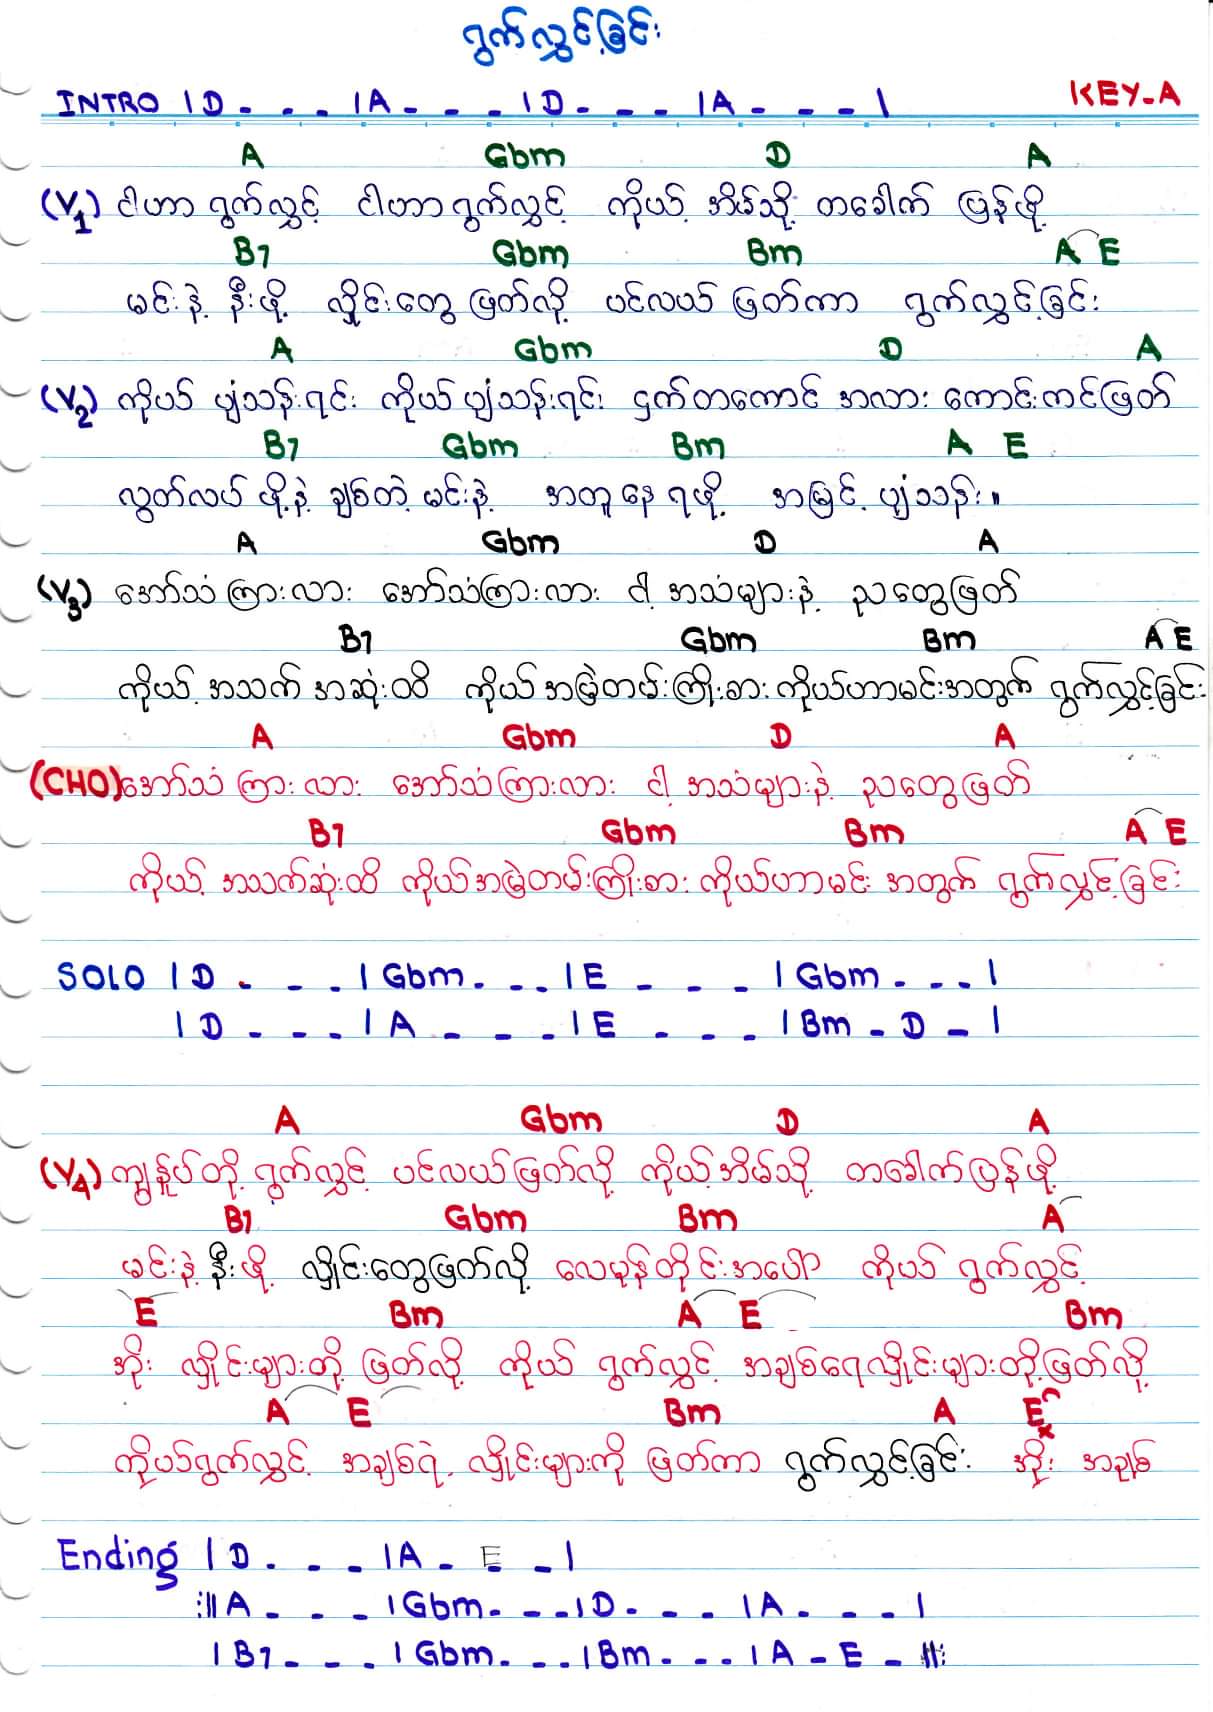 ရွက်လွှင့်ခြင်း
INTRO | D - - - | A - - - | D - - - | A - - - |
KEY-A
A Gbm D A
(V1) ငါဟာ ရွက်လွှင့် ငါဟာ ရွက်လွှင့် ကိုယ့် အိမ်သို့ တခေါက် ပြန်ဖို့
B7 Gbm Bm A E
မင်းနဲ့ နီးဖို့ လှိုင်းတွေ ဖြတ်လို့ ပင်လယ် ဖြတ်ကာ ရွက်လွှင့်ခြင်း
A Gbm D A
(V2) ကိုယ် ပျံသန်းရင်း ကိုယ် ပျံသန်းရင်း ငှက်တကောင် အလား ကောင်းကင်ဖြတ်
B7 Gbm Bm A E
လွတ်လပ် ဖို့နဲ့ ချစ်တဲ့ မင်းနဲ့ အတူ နေ ရဖို့ အမြင့် ပျံသန်း။
A Gbm D A
(V3) အော်သံ ကြားလား အော်သံကြားလား ငါ့ အသံများနဲ့ ညတွေဖြတ်
B7 Gbm Bm A E
ကိုယ့် အသက် အဆုံးထိ ကိုယ် အမြဲတမ်းကြိုးစား ကိုယ်ဟာမင်းအတွက် ရွက်လွှင့်ခြင်း
A Gbm D A
(CHO) အော်သံ ကြားလား အော်သံကြားလား ငါ့ အသံများနဲ့ ညတွေဖြတ်
B7 Gbm Bm A E
ကိုယ့် အသက်ဆုံးထိ ကိုယ်အမြဲတမ်းကြိုးစား ကိုယ်ဟာမင်း အတွက် ရွက်လွှင့်ခြင်း
SOLO | D - - - | Gbm - - - | E - - - | Gbm - - - |
| D - - - | A - - - | E - - - | Bm - D - |
A Gbm D A
(V4) ကျွန်ုပ်တို့ ရွက်လွှင့် ပင်လယ်ဖြတ်လို့ ကိုယ့်အိမ်သို့ တခေါက်ပြန်ဖို့
B7 Gbm Bm A
မင်းနဲ့ နီးဖို့ လှိုင်းတွေဖြတ်လို့ လေမုန်တိုင်းအပေါ် ကိုယ် ရွက်လွှင့်
E Bm A E Bm
အိုး လှိုင်းများတို့ ဖြတ်လို့ ကိုယ် ရွက်လွှင့် အချစ်ရေလှိုင်းများတို့ဖြတ်လို့
A E Bm A E
ကိုယ်ရွက်လွှင့် အချစ်ရဲ့ လှိုင်းများကို ဖြတ်ကာ ရွက်လွှင့်ခြင်း အိုး အချစ်
Ending | D - - - | A - E - |
:|| A - - - | Gbm - - - | D - - - | A - - - |
| B7 - - - | Gbm - - - | Bm - - - | A - E - ||: